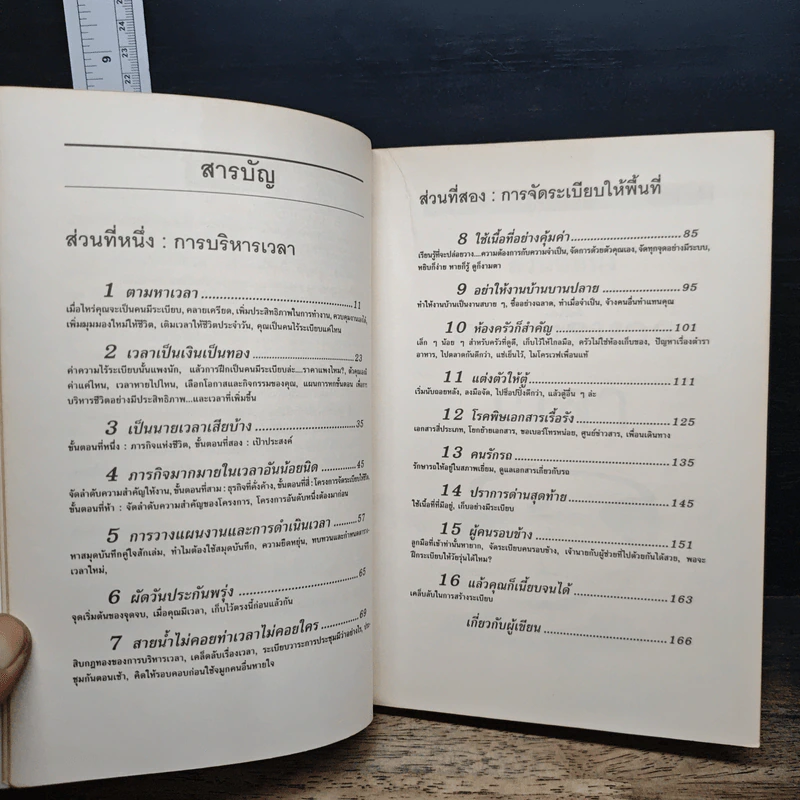 สารบัญ
ส่วนที่หนึ่ง : การบริหารเวลา
1 ตามหาเวลา 11
เมื่อไหร่คุณจะเป็นคนมีระเบียบ, คลายเครียด, เพิ่มประสิทธิภาพในการทำงาน, ควบคุมงานเอาไว้,
เพิ่มมุมมองใหม่ให้ชีวิต, เติมเวลาให้ชีวิตประจำวัน, คุณเป็นคนไร้ระเบียบแค่ไหน
2 เวลาเป็นเงินเป็นทอง 23
ค่าความไร้ระเบียบนั้นแพงนัก, แล้วการฝึกเป็นคนมีระเบียบล่ะ...ราคาแพงไหม?, ตัวคุณเองมี
ค่าแค่ไหน, เวลาหายไปไหน, เลือกโอกาสและกิจกรรมของคุณ, แผนการหกขั้นตอน เพื่อการ
บริหารชีวิตอย่างมีประสิทธิภาพ...และเวลาที่เพิ่มขึ้น
3 เป็นนายเวลาเสียบ้าง 35
ขั้นตอนที่หนึ่ง : ภารกิจแห่งชีวิต, ขั้นตอนที่สอง : เป้าประสงค์
4 ภารกิจมากมายในเวลาอันน้อยนิด 45
จัดลำดับความสำคัญให้งาน, ขั้นตอนที่สาม : ธุรกิจที่คั่งค้าง, ขั้นตอนที่สี่ : โครงการจัดระเบียบให้ชีวิต
ขั้นตอนที่ห้า : จัดลำดับความสำคัญของโครงการ, โครงการอันดับหนึ่งต้องมาก่อน
5 การวางแผนงานและการดำเนินเวลา 57
หาสมุดบันทึกคู่ใจสักเล่ม, ทำไมต้องใช้สมุดบันทึก, ความยืดหยุ่น, ทบทวนและกำหนดตาราง-
เวลาใหม่,
6 ผัดวันประกันพรุ่ง 65
จุดเริ่มต้นของจุดจบ, เมื่อคุณมีเวลา, เก็บไว้ตรงนี้ก่อนแล้วกัน
7 สายน้ำไม่คอยท่าเวลาไม่คอยใคร 69
สิบกฎทองของการบริหารเวลา, เคล็ดลับเรื่องเวลา, ระเบียบวาระการประชุมมีว่าอย่างไร,
ชุมกันตอนเช้า, คิดให้รอบคอบก่อนใช้จมูกคนอื่นหายใจ
ส่วนที่สอง : การจัดระเบียบให้พื้นที่
8 ใช้เนื้อที่อย่างคุ้มค่า 85
เรียนรู้ที่จะปล่อยวาง...ความต้องการกับความจำเป็น, จัดการด้วยตัวคุณเอง, จัดทุกจุดอย่างมีระบบ,
หยิบก็ง่าย หายก็รู้ ดูก็งามตา
9 อย่าให้งานบ้านบานปลาย 95
ทำให้งานบ้านเป็นงานสบาย ๆ, ซื้ออย่างฉลาด, ทำเมื่อจำเป็น, จ้างคนอื่นทำแทนคุณ
10 ห้องครัวก็สำคัญ 101
เล็ก ๆ น้อย ๆ สำหรับครัวที่ดูดี, เก็บไว้ให้ใกล้มือ, ครัวไม่ใช่ห้องเก็บของ, ปัญหาเรื่องตำรา
อาหาร, ไปตลาดกันดีกว่า, แช่เย็นไว้, ไมโครเวฟเพื่อนแท้
11 แต่งตัวให้ตู้ 111
เริ่มนับถอยหลัง, ลงมือจัด, ไปช็อปปิ้งดีกว่า, แล้วตู้อื่น ๆ ล่ะ
12 โรคพิษเอกสารเรื้อรัง 125
เอกสารสี่ประเภท, โยกย้ายเอกสาร, ขอเบอร์โทรหน่อย, ศูนย์ข่าวสาร, เพื่อนเดินทาง
13 คนรักรถ 135
รักษารถให้อยู่ในสภาพเยี่ยม, ดูแลเอกสารเกี่ยวกับรถ
14 ปราการด่านสุดท้าย 145
ใช้เนื้อที่ที่มีอยู่, เก็บอย่างมีระเบียบ
15 ผู้คนรอบข้าง 151
ลูกมือที่เข้าท่านั้นหายาก, จัดระเบียบคนรอบข้าง, เจ้านายกับผู้ช่วยที่ไปด้วยกันได้สวย, พอจะ
ฝึกระเบียบให้วัยรุ่นได้ไหม?
16 แล้วคุณก็เนี้ยบจนได้ 163
เคล็บลับในการสร้างระเบียบ
เกี่ยวกับผู้เขียน 166
9
24
23
22